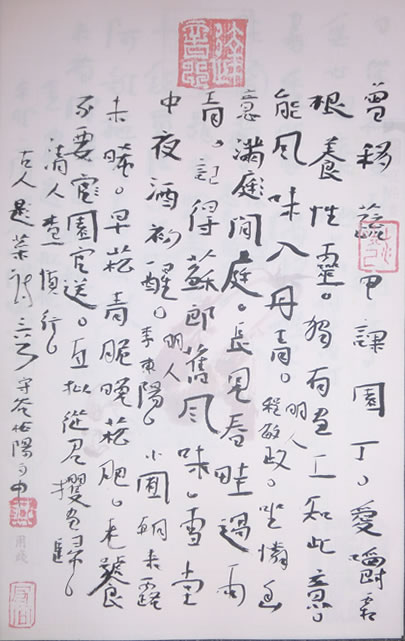 曾移蔬甲課園丁。愛嚼霜
根養性靈。獨有畫工知此意。
能風味入丹青。明人程敏政。坐憐生
意滿庭閒庭。長見春畦過雨
青。記得蘇郎舊風味。雪堂
中夜酒初醒。明人李東陽。小圃朝來露
未晞。早菘青脆晚菘肥。老饕
不要官園官送。自擬從君擷
清人查慎行。
古人題菜詩三首